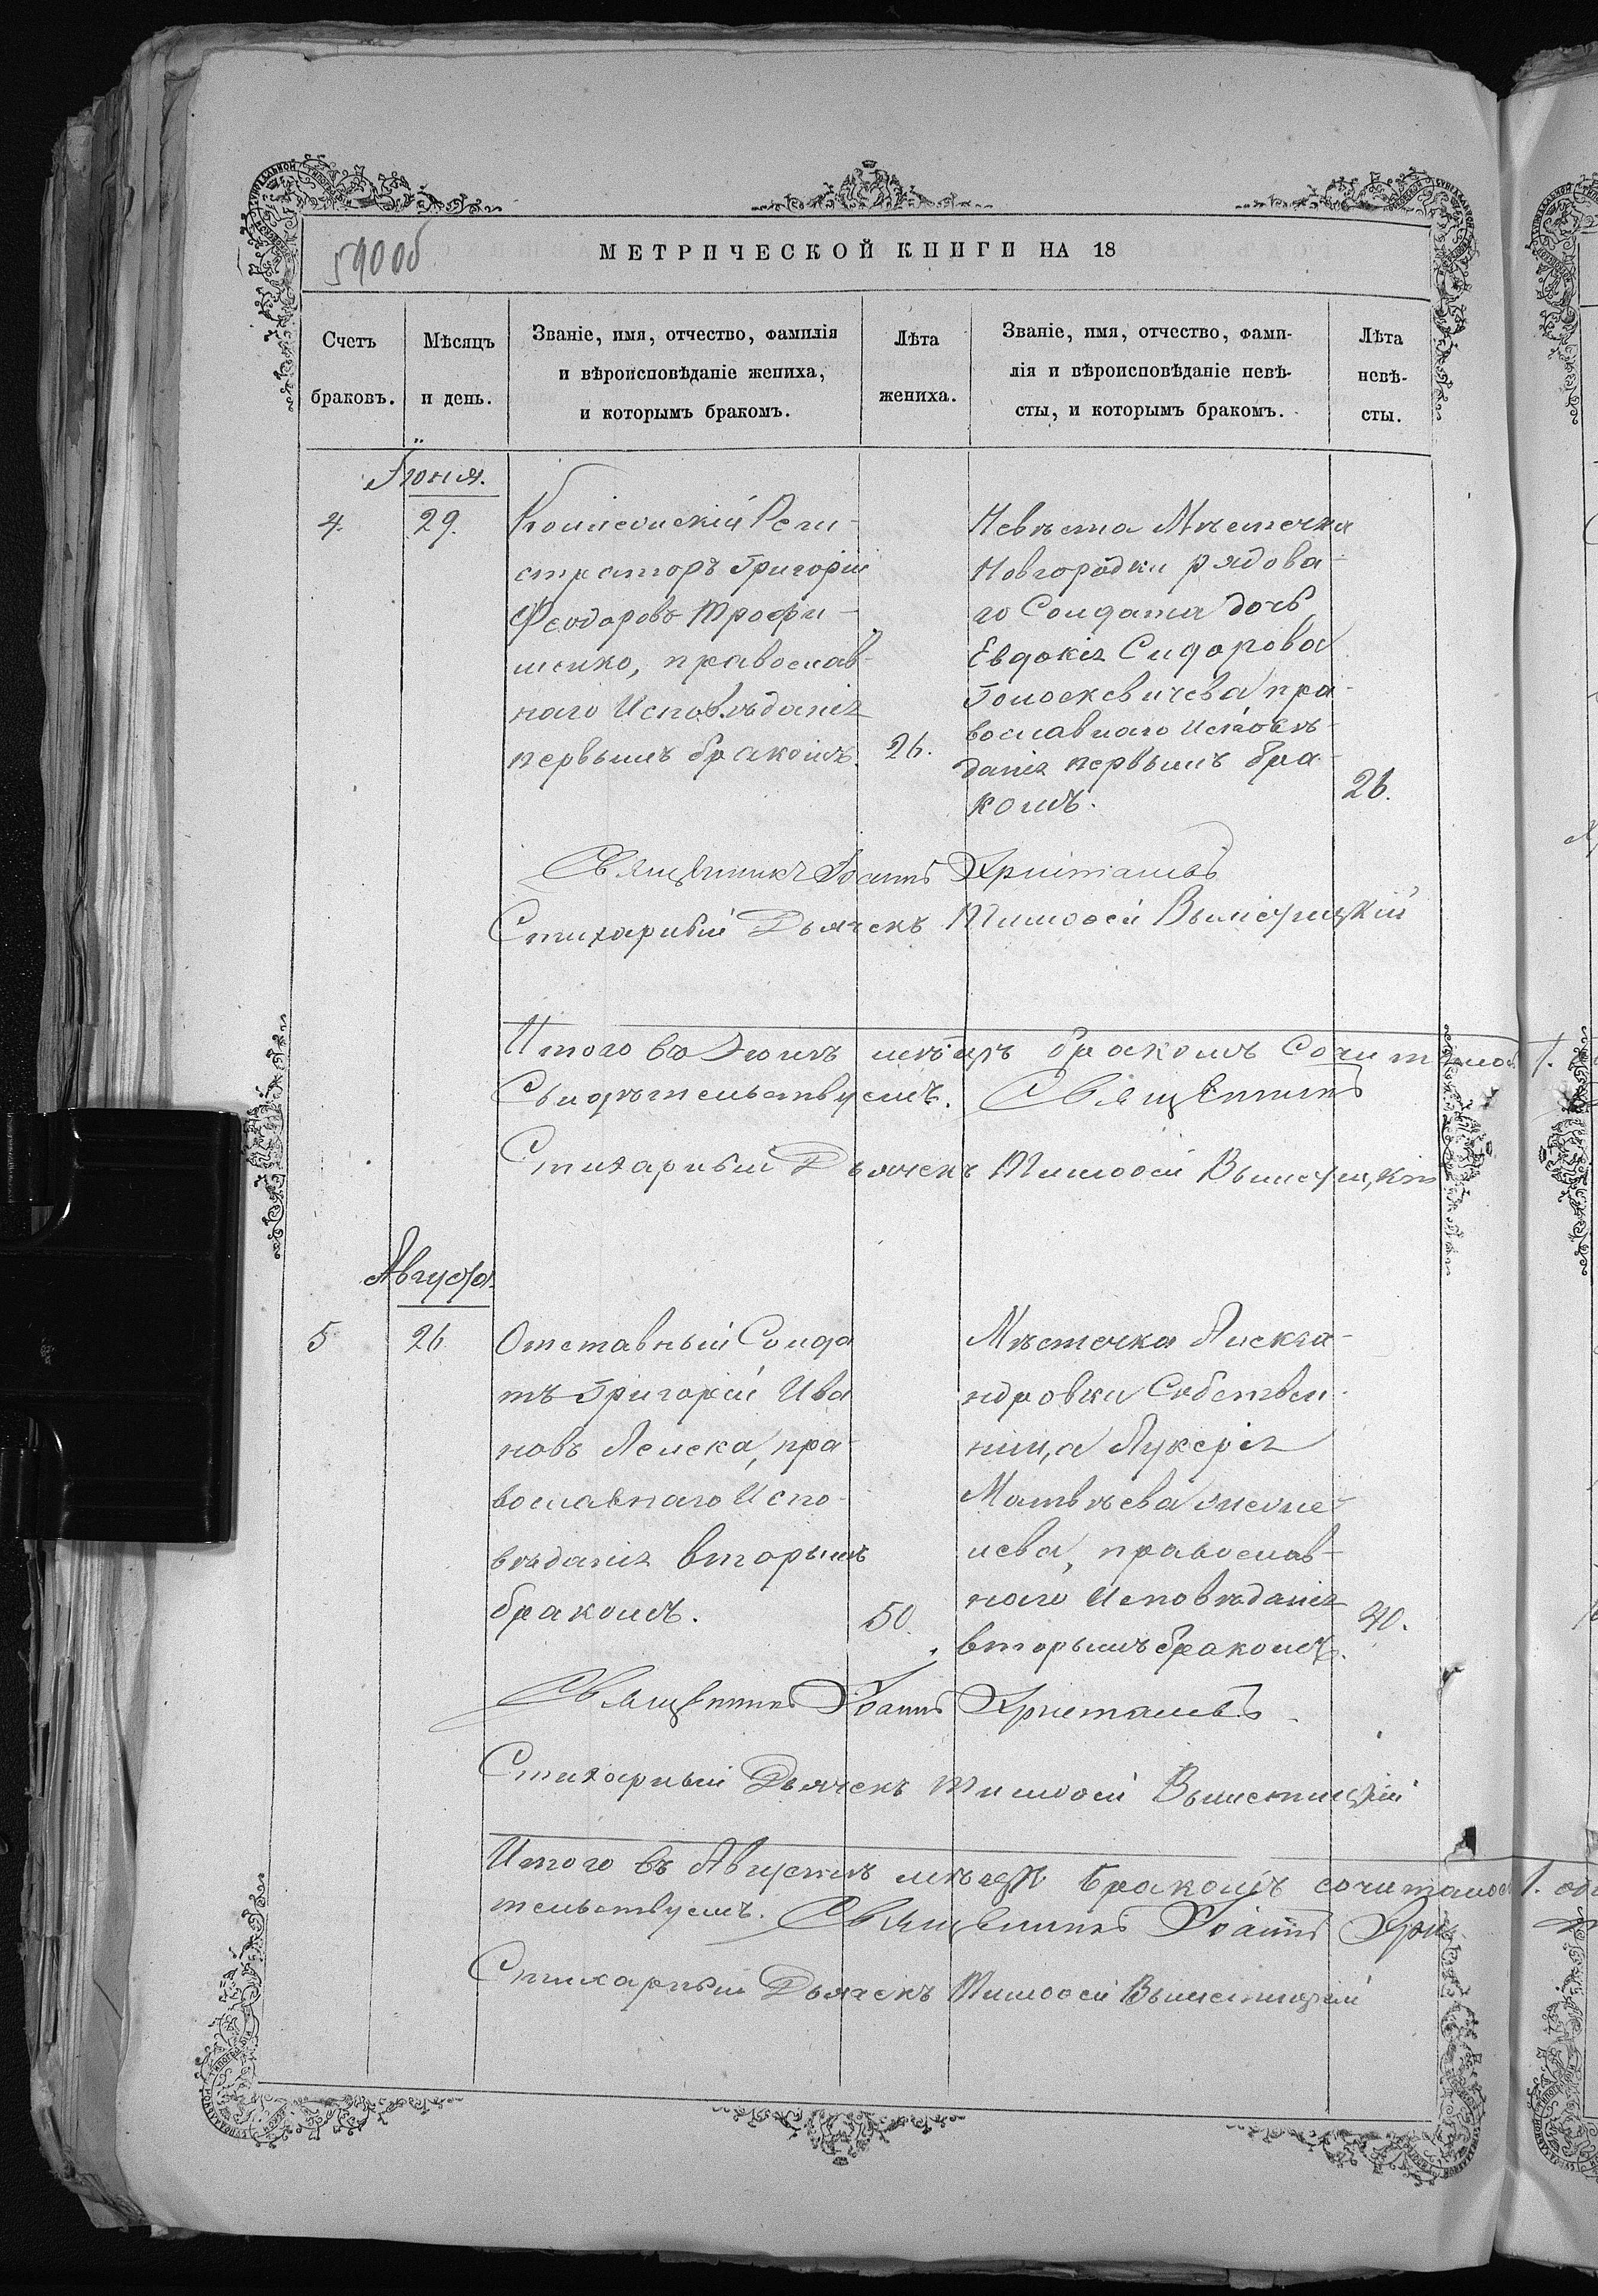 590об
МЕТРИЧЕСКОЙ КНИГИ НА 18
Счетъ браковъ.
Мѣсяцъ и день.
Званіе, имя, отчество, фамилія
и вѣроисповѣданіе жениха,
и которымъ бракомъ.
Лѣта
жениха.
Званіе, имя, отчество, фами-
лія и вѣроисповѣданіе невѣ-
сты, и которымъ бракомъ.
Лѣта
невѣ-
сты.
Іюня.
4. 29.
Коллежскій Реги-
страторъ Григорій
Феодоровъ Трофи-
менко, православ-
наго Исповѣданія
первымъ бракомъ.
26.
Невѣста Мѣстечка
Новгородки рядова-
го Солдата дочь
Евдокія Сидорова
пра-
вославнаго Исповѣ-
данія первымъ бра-
комъ.
26.
Священникъ Іоаннъ
Стихарный Дьячекъ Тимоѳей
Итого въ Іюнѣ мѣ-цѣ бракомъ Сочиталось 1.
Свидѣтельствуемъ. Священникъ
Стихарный Дьячекъ Тимоѳей
Августа.
5 26
Отставный Солда
тъ Григорій Ива
новъ пра-
вославнаго Испо-
вѣданія вторымъ
бракомъ.
50.
Мѣстечка Алекса-
ндровки Собствен-
ница Лукерія
Матвѣева
православ-
наго Исповѣданія
вторымъ бракомъ.
40.
Священникъ Іоаннъ
Стихарный Дьячекъ Тимоѳей
Итого въ Августѣ мѣсяцѣ бракомъ сочиталось 1.
тельствуемъ. Священникъ Іоаннъ
Стихарный Дьячекъ Тимоѳей